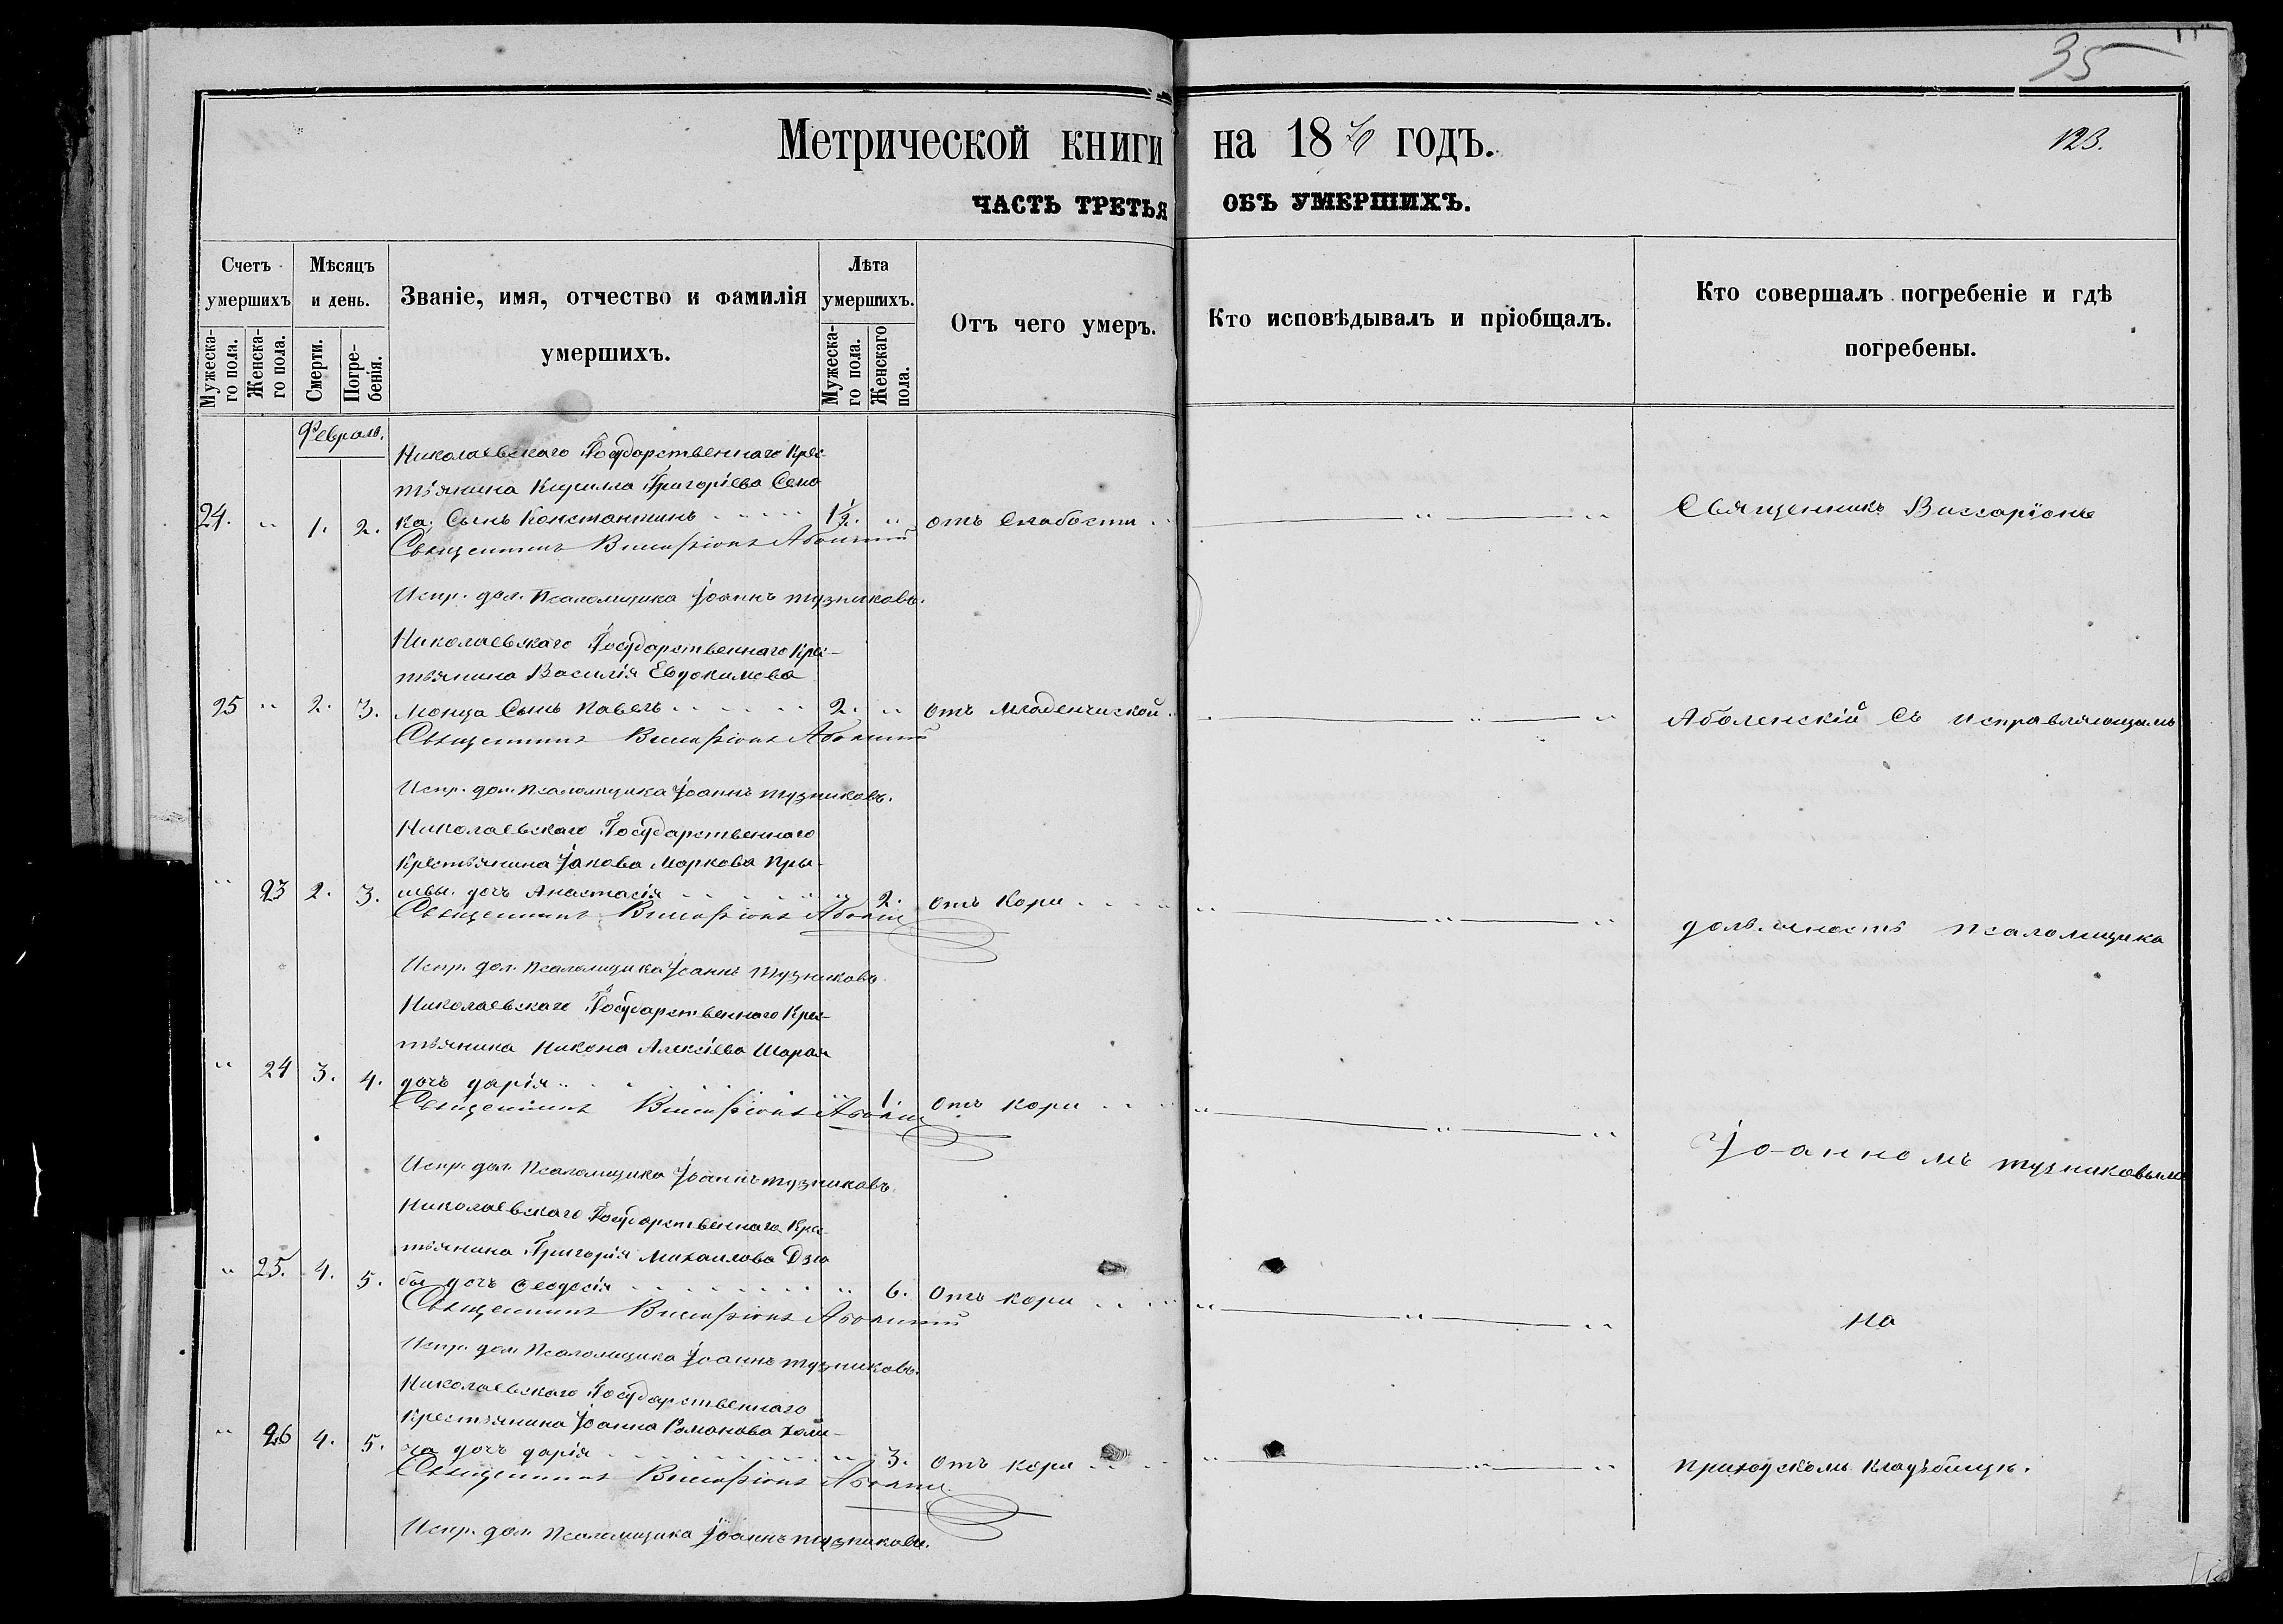 35
Метрической книги на 18 годъ.
123.
ЧАСТЬ ТРЕТЬЯ ОБЪ УМЕРШИХЪ.
Счетъ умершихъ
Мужеска-го пола.
Женска-го пола.
Мѣсяцъ и день.
Смерти.
Погре-бенія.
Званіе, имя, отчество и фамилія умершихъ.
Лѣта умершихъ.
Мужеска-го пола.
Женскаго пола.
Отъ чего умеръ.
Кто исповѣдывалъ и пріобщалъ.
Кто совершалъ погребеніе и гдѣ погребены.
Февраль.
Николаевскаго Государственнаго Крес-
тьянина Кирилла Григоріева Сено
24. " 1. 2. ка. Сынъ Константинъ 1½. " отъ Слабости " " Священникъ Виссаріонъ
Священникъ Виссаріонъ
Испр. дол. Псаломщика Іоаннъ Тузниковъ.
Николаевскаго Государственнаго Крес-
тьянина Василія Евдокимова
25 " 2. 3. Сынъ Павелъ 2. " Отъ Младенчиской. " " Аболенскій Съ исправляющимъ
Священникъ Виссаріонъ
Испр. дол. Псаломщика Іоаннъ Тузниковъ.
Николаевскаго Государственнаго
Крестьянина Іакова Маркова Пры-
" 23 2. 3. дочь Анастасія " 2. Отъ Кори " " должность Псаломщика
Священникъ Виссаріонъ
Испр. дол. Псаломщика Іоаннъ Тузниковъ.
Николаевскаго Государственнаго Крес-
тьянина Никона Алексіева Шарая
" 24 3. 4. дочь дарія " 1. Отъ кори " "
Священникъ Виссаріонъ
Іоанномъ Тузниковымъ
Испр. дол. Псаломщика Іоаннъ Тузниковъ
Николаевскаго Государственнаго Крес-
тьянина Григорія Михаилова Дзю
" 25. 4. 5. бы дочь Феодосія " 6. Отъ кори " " На
Священникъ Виссаріонъ
Испр. дол. Псаломщика Іоаннъ Тузниковъ.
Николаевскаго Государственнаго
Крестьянина Іоанна Романова
" 26 4. 5. дочь дарія " 3. Отъ кори " " приходскомъ кладъбищѣ.
Священникъ Виссаріонъ
Испр. дол. Псаломщика Іоаннъ Тузниковъ.